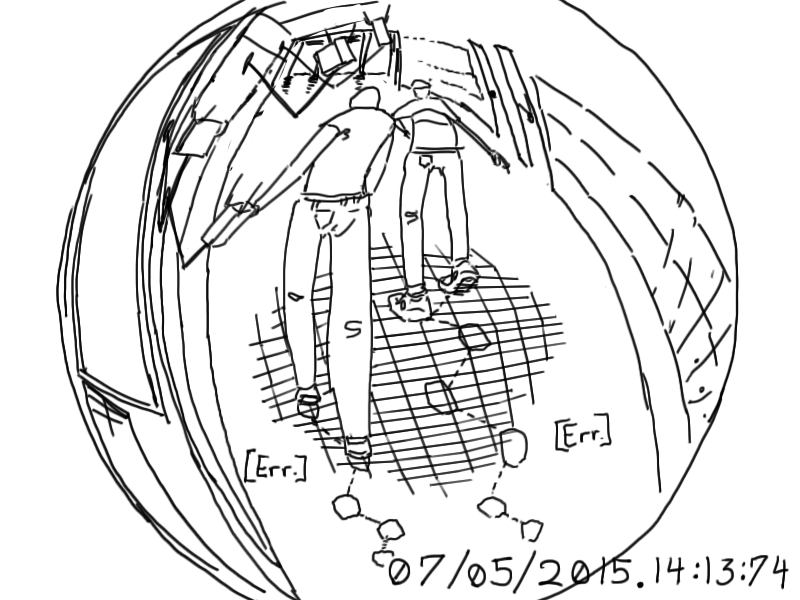 [Err.]
[Err.]
07/05/2015.14:13:74